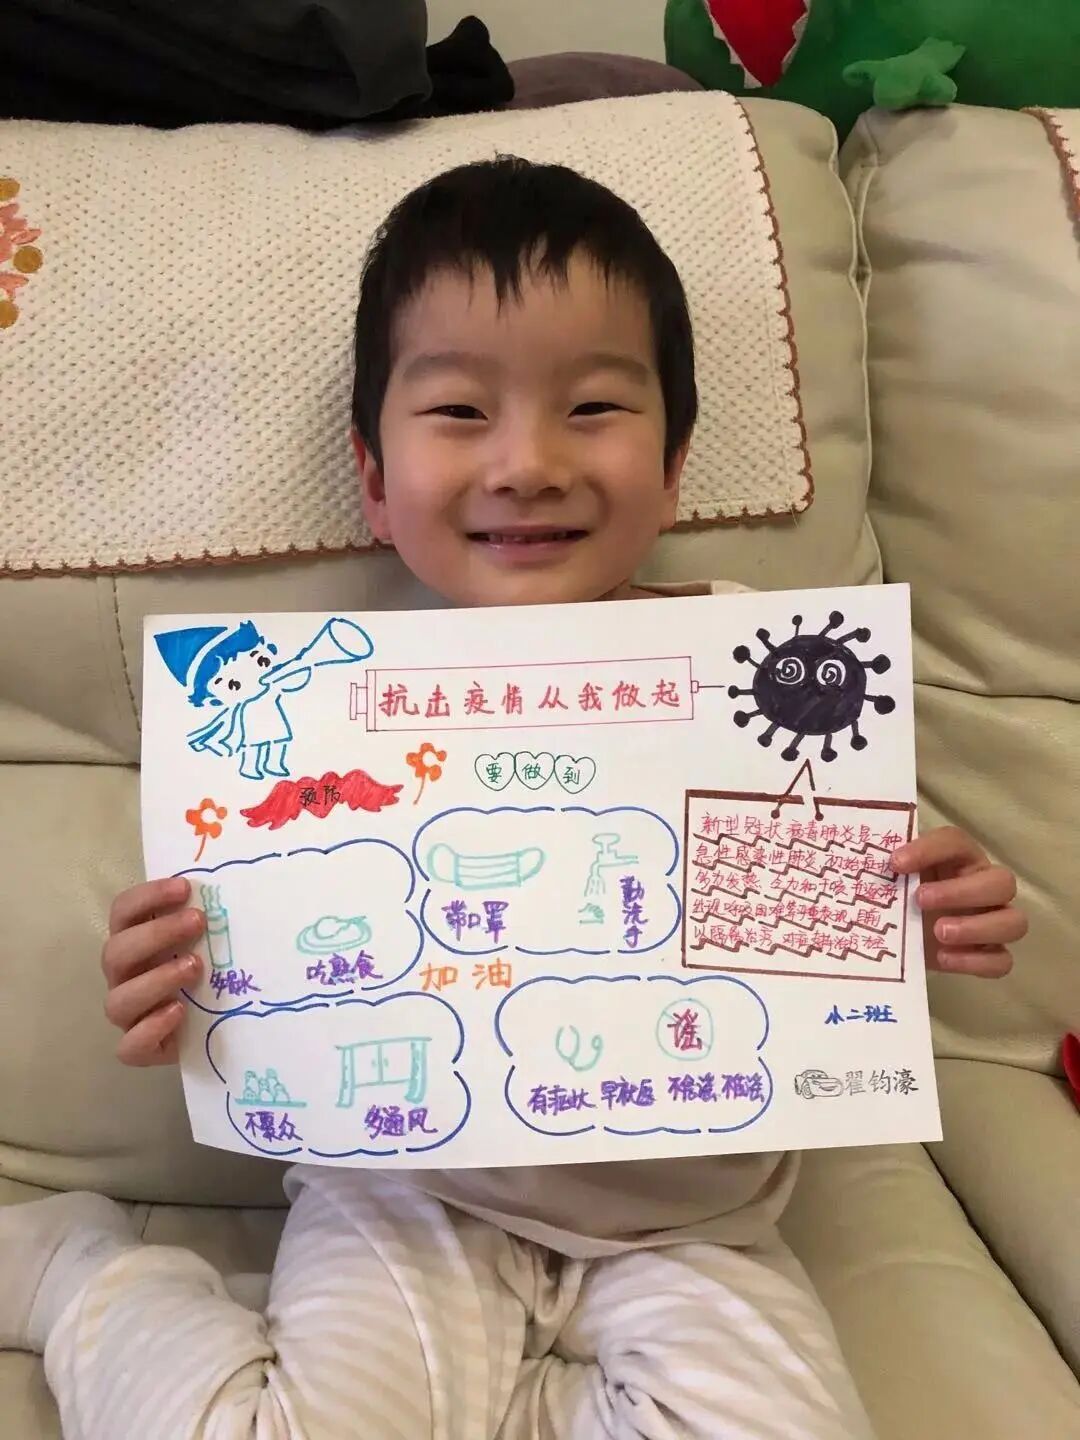 抗击疫情从我做起
要做到
预防
新型冠状病毒肺炎是一种
急性感染性肺炎,初始症状
多为发热、乏力和干咳,并逐渐
出现呼吸困难等严重表现,目前
以隔离治疗,对症支持治疗为主
带口罩
勤洗手
多喝水
吃熟食
加油
不聚众
多通风
谣
有症状 早就医 不信谣 不传谣
小二班
翟钧濠